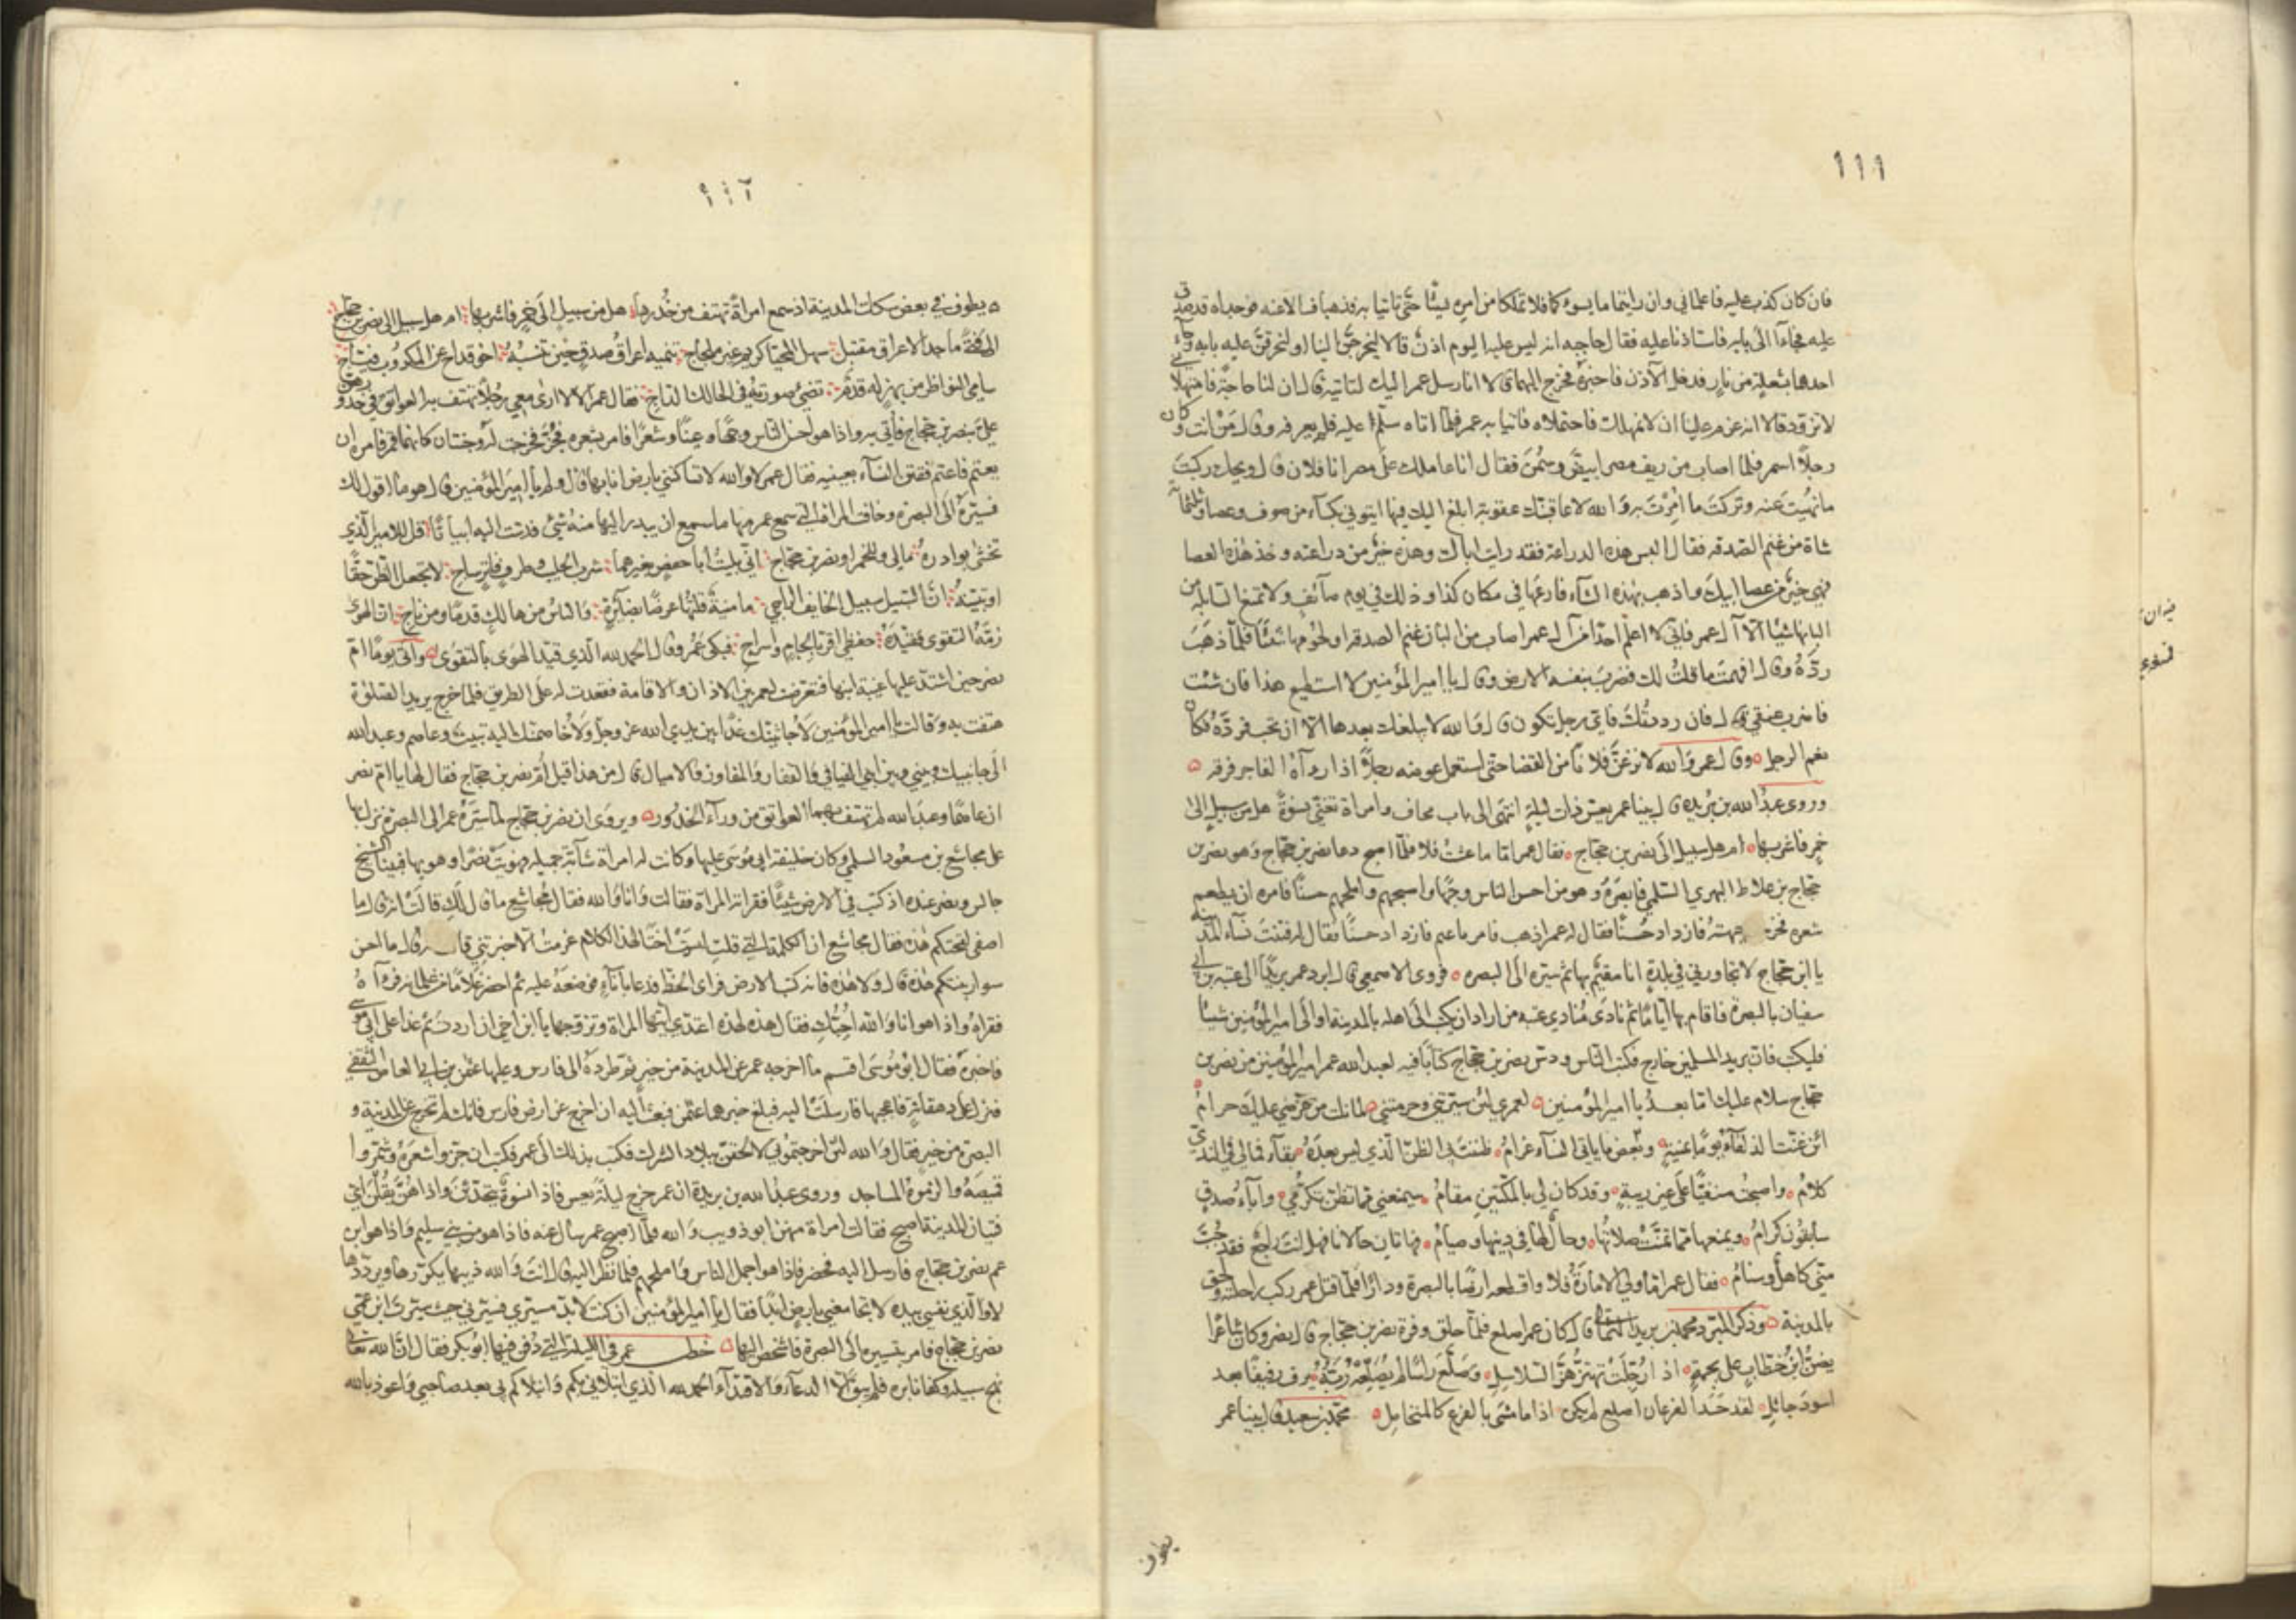 ١١١
فان كان كذب عليه فاعلماني وان رايتما ما يسوءكما فلا تملكا من امره شيئا حتى تاتيا به فذهبا فسالا عنه فوجداه قد صدق
عليه فجاءا الى بابه فاستاذنا عليه فقال حاجبه انه ليس عليه اليوم اذن قالا ليخرجن الينا او لنحرقن عليه بابه وجاء
احدهما بشعلة من نار فدخل الآذن فاخبره فخرج اليهما قالا انا رسل عمر اليك لتاتيه قال ان لنا حاجة فامهلاني
لاتزود قالا انه عزم علينا ان لا نمهلك فاحتملاه فاتيا به عمر فلما اتاه سلم عليه فلم يعرفه وقال من انت وكان
رجلا اسمر فلما اصاب من ريف مصر ابيض وسمن فقال انا عاملك على مصر انا فلان قال ويحك ركبت
ما نهيت عنه وتركت ما امرت به والله لاعاقبنك عقوبة ابلغ اليك فيها ايتوني بكساء من صوف وعصا وثلثمائة
شاة من غنم الصدقه فقال البس هذه الدراعة فقد رايت اباك وهذه خير من دراعته وخذ هذه العصا
فهي خير من عصا ابيك واذهب بهذه الشاء فارعها في مكان كذا وذلك في يوم صائف ولا تمنع السابلة من
البانها شيئا الا آل عمر فاني لا اعلم احدا من آل عمر اصاب من البان غنم الصدقه ولحومها شيئا فلما ذهب
رده وقال افهمت ما قلت لك فضرب بنفسه الارض وقال يا امير المؤمنين لا استطيع هذا فان شئت
فاضرب عنقي قال فان رددتك فاي رجل تكون قال والله لا يبلغك بعدها الا ما تحب فرده فكان
نعم الرجل وقال عمر والله لانزعن فلانا من القضا حتى استعمل عوضه رجلا اذا رآه الفاجر فرقه
وروى عبد الله بن بريدة قال بينا عمر يعس ذات ليلة انتهى الى باب مجاف وامراة تغني نسوة هل من سبيل الى
خمر فاشربها ام هل سبيل الى نصر بن حجاج فقال عمر اما ما عشت فلا فلما اصبح دعا نصر بن حجاج وهو نصر بن
حجاج بن علاط البهزي السلمي فابصره وهو من احسن الناس وجها واصبحهم واملحهم حسنا فامره ان يطم
شعره فخرجت جبهته فازداد حسنا فقال له عمر اذهب فاعتم فاعتم فازداد حسنا فقال له فتنت نساء المدينة
يا ابن حجاج لا تجاورني في بلدة انا مقيم بها ثم سيره الى البصره فروى الاصمعي قال ابرد عمر بريدا الى عتبه بن ابي
سفيان بالبصرة فاقام بها اياما ثم نادى منادي عتبه من اراد ان يكتب الى اهله بالمدينة او الى امير المؤمنين شيئا
فليكتب فان بريد المسلمين خارج فكتب الناس ودس نصر بن حجاج كتابا فيه لعبد الله عمر امير المؤمنين من نصر بن
حجاج سلام عليك اما بعد يا امير المؤمنين لعمري لئن سيرتني وحرمتني لما نلت من عرضي عليك حرام
ائن غنت الذلفاء يوما بمنية وبعض ما ياتي النساء غرام ظننت بي الظن الذي ليس بعده بقاء فمالي في الندي
كلام واصبحت منفيا على غير ريبة وقد كان لي بالمكتين مقام سيمنعني مما تظن تكرمي وآباء صدق
سابقون كرام ويمنعها مما تمنت صلاتها وحال لها في دينها وصيام فهاتان حالانا فهل انت راجع فقد جب
مني كاهل وسنام فقال عمر اما ولي الامارة فلا واقطعه ارضا بالبصرة ودارا فلما قتل عمر ركب راحلته ولحق
بالمدينة وذكر المبرد محمد بن يزيد الثمالي قال كان عمر اصلع فلما حلق وفرة نصر بن حجاج قال نصر وكان شاعرا
يضن ابن خطاب علي بجمة اذا رجلت تهتز هز السلاسل وصلع راسا لم يصلعه ربه يرف رفيفا بعد
اسود جائل لقد حسد الفرعان اصلع لم يكن اذا ما مشى بالفرع كالمتخايل محمد بن سعيد قال بينا عمر
يطوف
١١٢
يطوف في بعض سكك المدينة اذ سمع امراة تهتف من خدرها هل من سبيل الى خمر فاشربها ام هل سبيل الى نصر بن حجاج
الى فتى ماجد الاعراق مقتبل سهل المحيا كريم غير ملجاج تنميه اعراق صدق حين تنسبه اخو قداح عن المكروب فراج
سامي النواظر من بهز له قدم تضيء صورته في الحالك الداج فقال عمر الا لا ارى معي رجلا تهتف به العواتق في خدورهن
علي بنصر بن حجاج فاتي به واذا هو احسن الناس وجها وعينا وشعرا فامر بشعره فجز فخرجت له وجنتان كانهما قمر فامره ان
يعتم فاعتم ففتن النساء بعينيه فقال عمر لا والله لا تساكنني بارض انا بها قال ولم يا امير المؤمنين قال هو ما اقول لك
فسيره الى البصرة وخافت المراة التي سمع عمر منها ما سمع ان يبدر اليها منه شيء فدست اليه ابياتا قل للامير الذي
تخشى بوادره مالي وللخمر او نصر بن حجاج اني بليت ابا حفص بغيرهما شرب الحليب وطرف فاتر ساج لا تجعل الظن حقا
او تبينه ان السبيل سبيل الخايف الراجي ما منية قلتها عرضا بضائرة والناس من هالك قدما ومن ناج ان الهوى
زمه التقوى فقيده حفظي اقر بالجام واسراج فبكى عمر وقال الحمد لله الذي قيد الهوى بالتقوى واتته يوما ام
نصر حين اشتد عليها غيبة ابنها فتعرضت لعمر بين الاذان والاقامة فقعدت له على الطريق فلما خرج يريد الصلوة
هتفت به وقالت يا امير المؤمنين لاجاثينك غدا بين يدي الله عز وجل ولاخاصمنك اليه تبيت وعاصم وعبد الله
الى جانبيك وبيني وبين ابني الفيافي والقفار والمفاوز والاميال قال من هذه قيل ام نصر بن حجاج فقال لها يا ام نصر
ان عاصما وعبد الله لم تهتف بهما العواتق من وراء الخدور ويروى ان نصر بن حجاج لما سيره عمر الى البصرة نزل بها
على مجاشع بن مسعود السلمي وكان خليفة ابي موسى عليها وكانت له امراة شابة جميلة فهويت نصرا وهويها فبينا الشيخ
جالس ونصر عنده اذ كتب في الارض شيئا فقراته المراة فقالت وانا والله فقال مجاشع ما قال لك قالت انه قال ما
اصفى لقحتكم هذه فقال مجاشع ان الكلمة التي قلت ليست اختا لهذا الكلام عزمت الا خبرتني قالت انه قال ما احسن
سوار بنتكم هذه قال ولا هذه فانه كتب في الارض فراى الخط فدعا باناء فوضعه عليه ثم احضر غلاما من غلمانه فقراه
فقراه واذا هو انا والله احبك فقال هذه لهذه اعتدي ايتها المراة وتزوجها يا ابن اخي ان اردت ثم غدا على ابي موسى
فاخبره فقال ابو موسى اقسم ما اخرجه عمر عن المدينة من خير ثم طرده الى فارس وعليها عثمن بن ابي العاص الثقفي
فنزل على دهقانة فاعجبها فارسلت اليه فبلغ خبرهما عثمن فبعث اليه ان اخرج عن ارض فارس فانك لم تخرج عن المدينة و
البصرة من خير فقال والله لئن اخرجتموني لالحقن ببلاد الشرك فكتب بذلك الى عمر فكتب ان جزوا شعره وشمروا
قميصه والزموه المساجد وروى عبد الله بن بريدة ان عمر خرج ليلة يعس فاذا نسوة يتحدثن واذا هن يقلن اي
فتيان المدينة اصبح فقالت امراة منهن ابو ذويب والله فلما اصبح عمر سال عنه فاذا هو من بني سليم واذا هو ابن
عم نصر بن حجاج فارسل اليه فحضر فاذا هو اجمل الناس واملحهم فلما نظر اليه قال انت والله ذيبها يكررها ويرددها
لا والذي نفسي بيده لا تجامعني بارض ابدا فقال يا امير المؤمنين ان كنت لابد مسيري فسيرني حيث سيرت ابن عمي
نصر بن حجاج فامر بتسييره الى البصرة فاشخص اليها خطب عمر في الليلة التي دفن فيها ابو بكر فقال ان الله تعالى
نهج سبيله وكفانا به فلم يبق الا الدعاء والاقتداء الحمد لله الذي ابتلاني بكم وابتلاكم بي بعد صاحبي واعوذ بالله